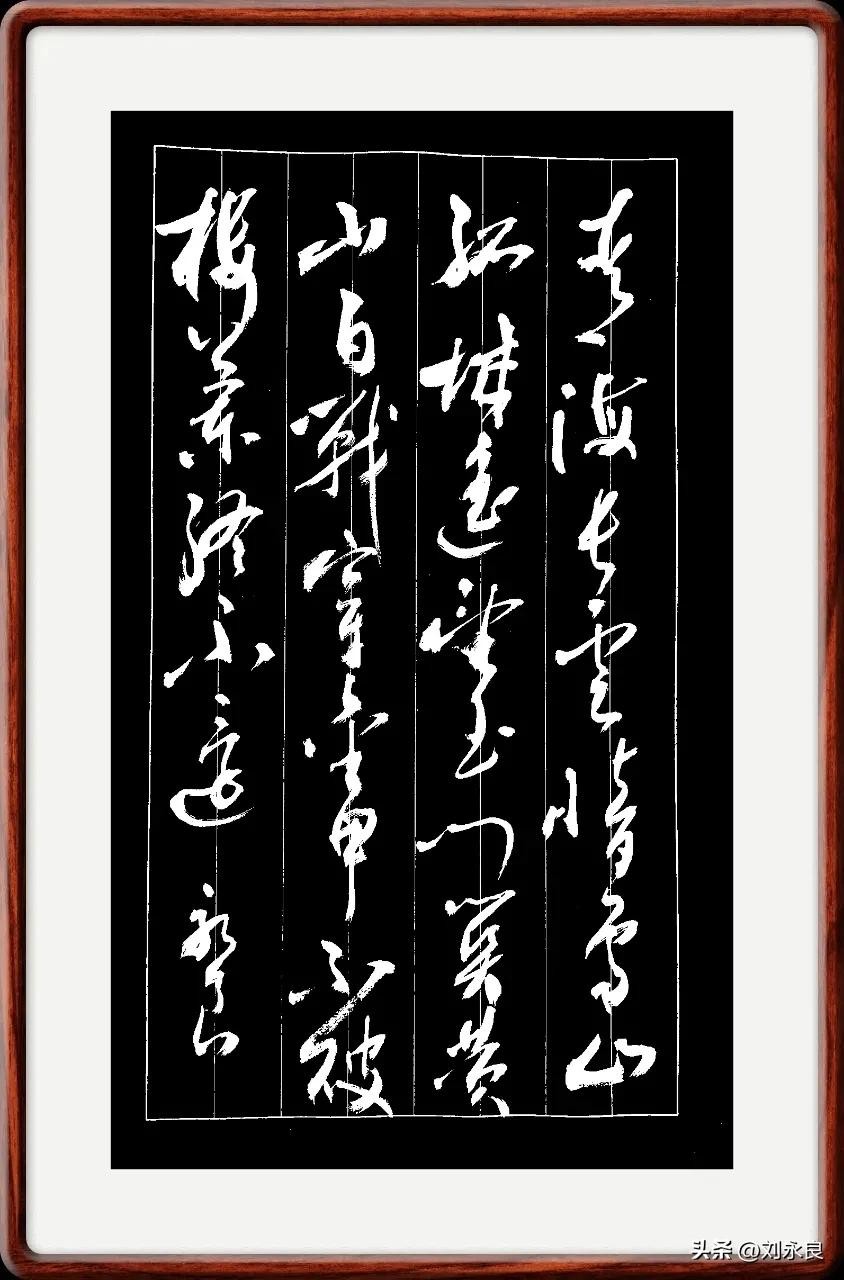 青海长雲暗雪山
孤城遥望玉门关黄
沙百戰穿金甲不破
楼蘭终不還
头条 @刘永良